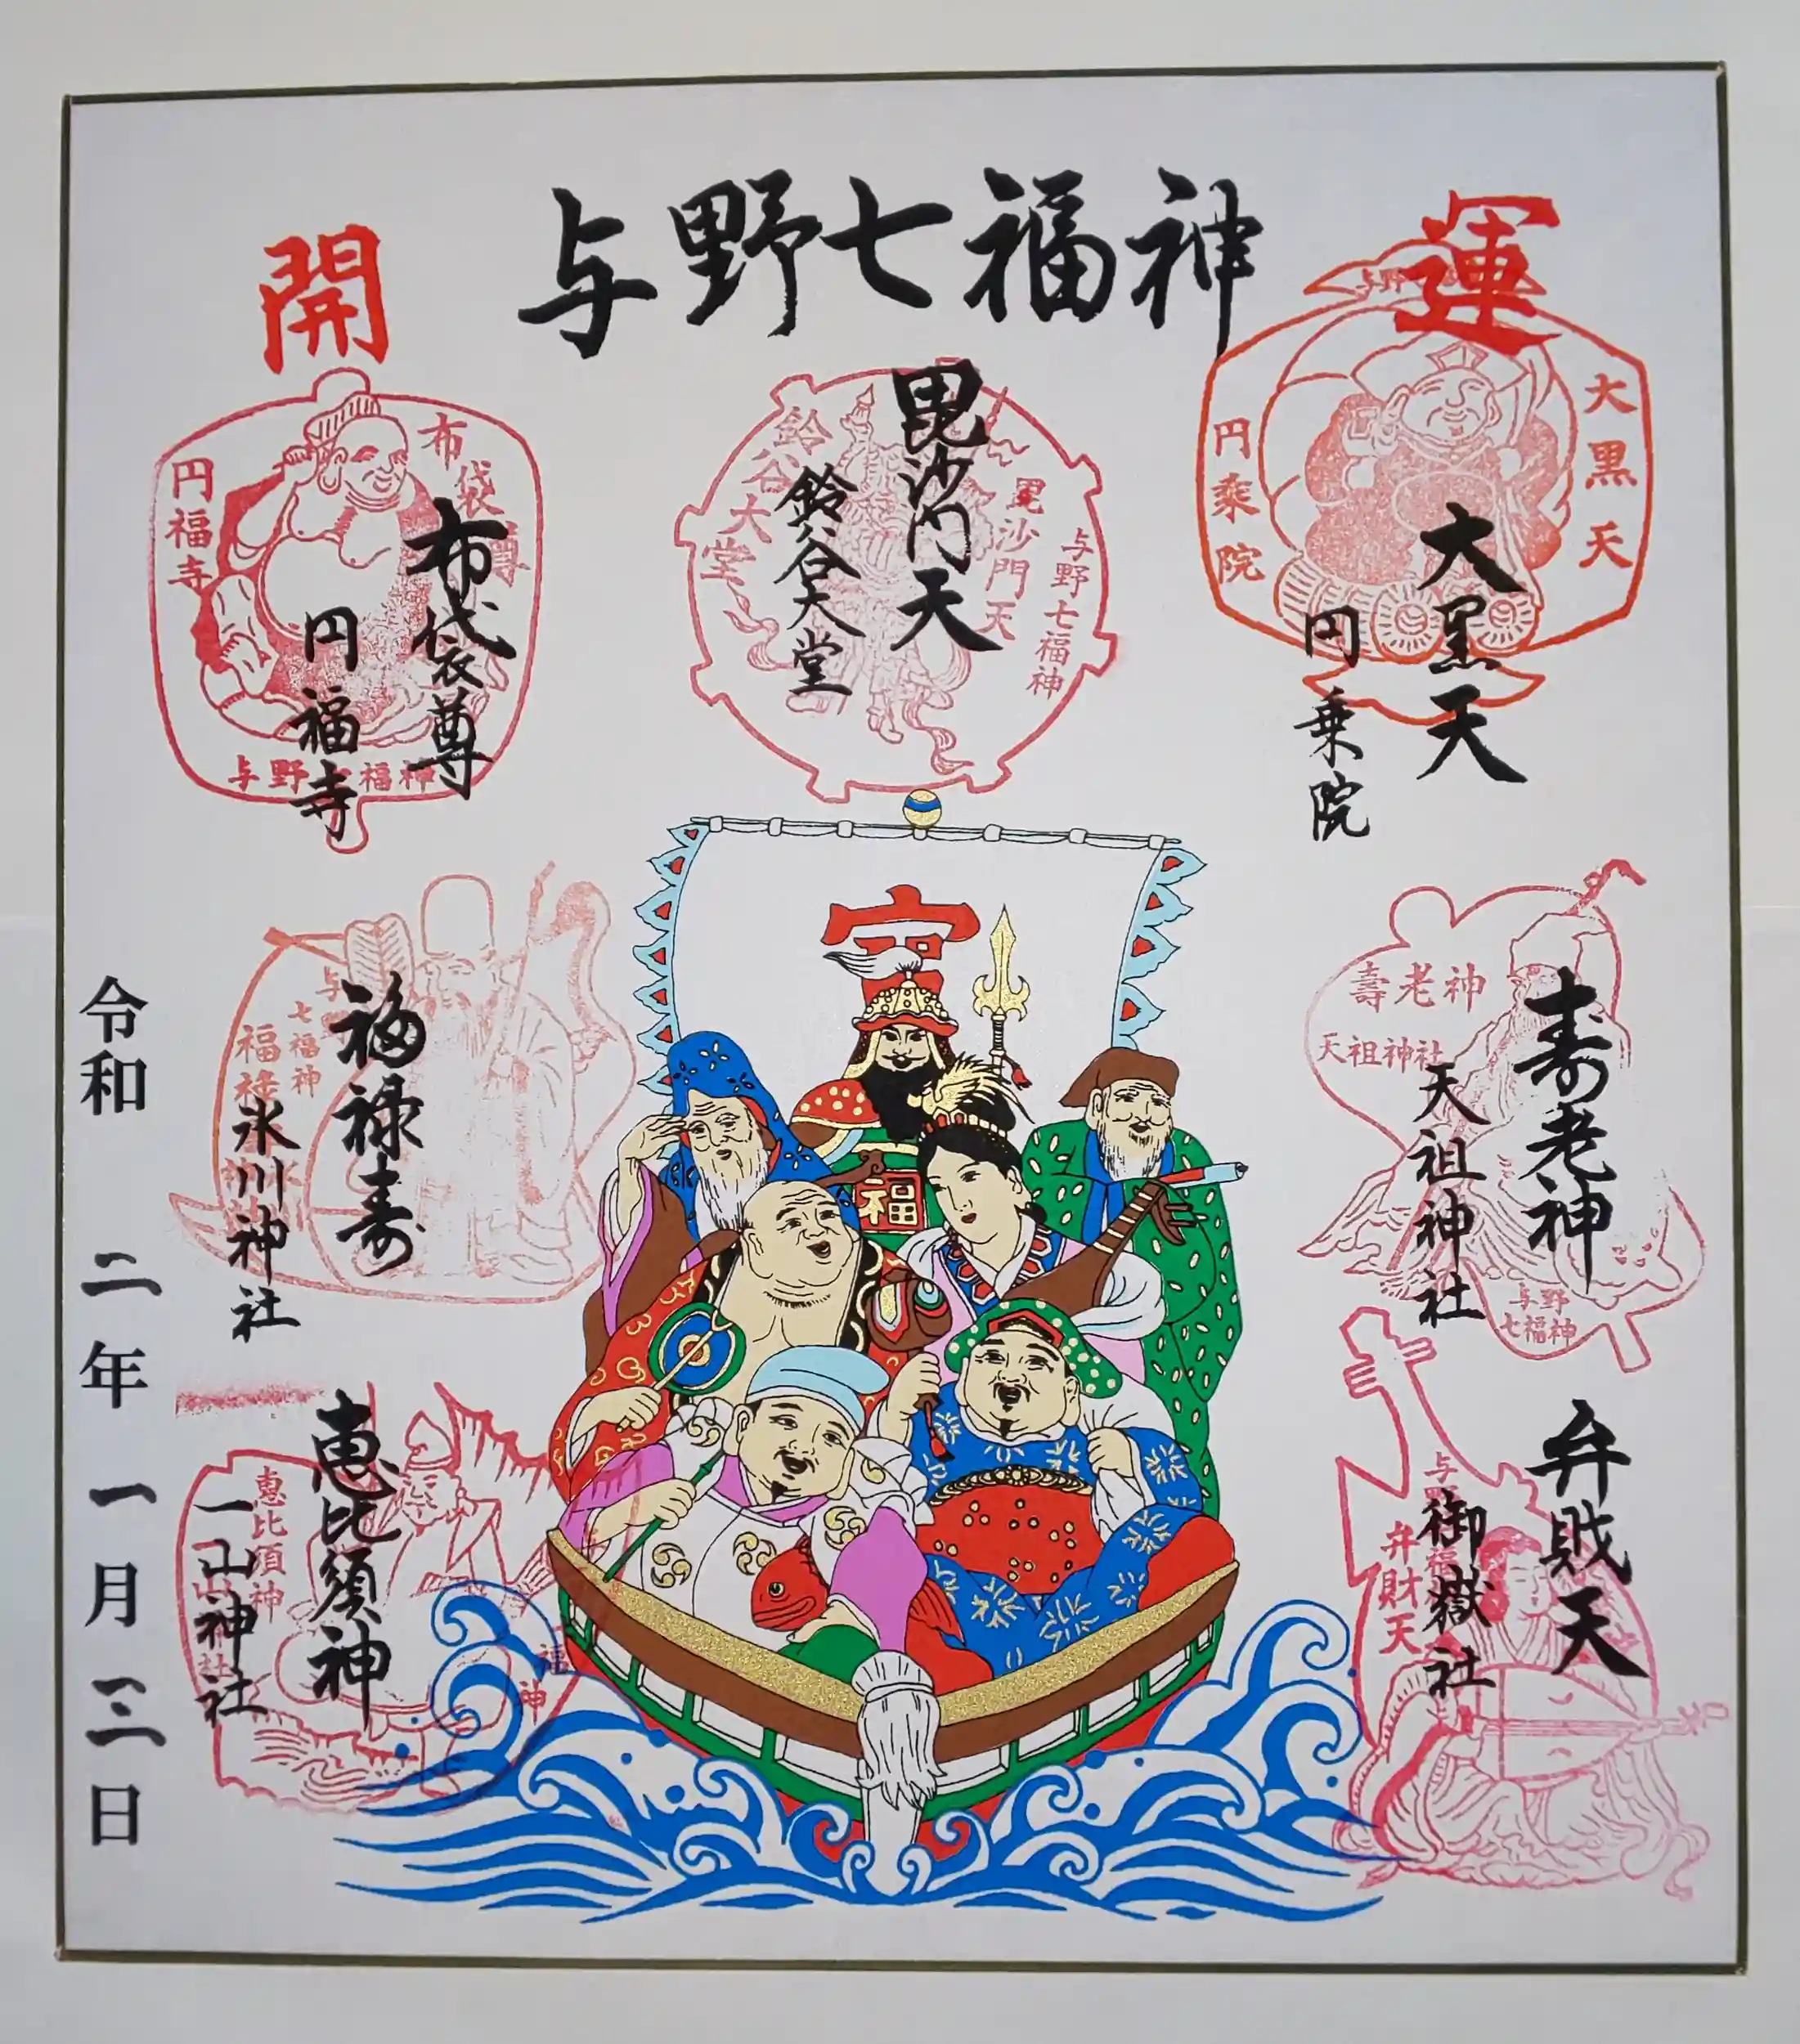 与野七福神
開
運
大黒天
円乗院
大黒天
円乗院
毘沙門天
鈴谷大堂
与野七福神
毘沙門天
鈴谷大堂
布袋尊
円福寺
布袋尊
円福寺
与野 福神
寿老神
天祖神社
壽老神
天祖神社
与野
七福神
福
福禄寿
氷川神社
与野
七福神
福禄
弁戝天
御嶽社
弁財天
恵比須神
一山神社
恵比須神
福神
令和 二年 一月 三日